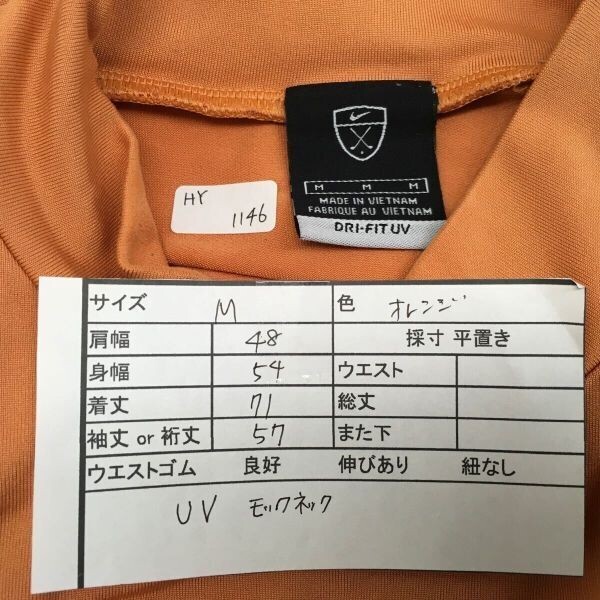 M M M
MADE IN VIETNAM
FABRIQUE AU VIETNAM
DRI-FIT UV
HY
1146
サイズ M 色 オレンジ
肩幅 48 採寸 平置き
身幅 54 ウエスト
着丈 71 総丈
袖丈 or 裄丈 57 また下
ウエストゴム 良好 伸びあり 紐なし
UV モックネック